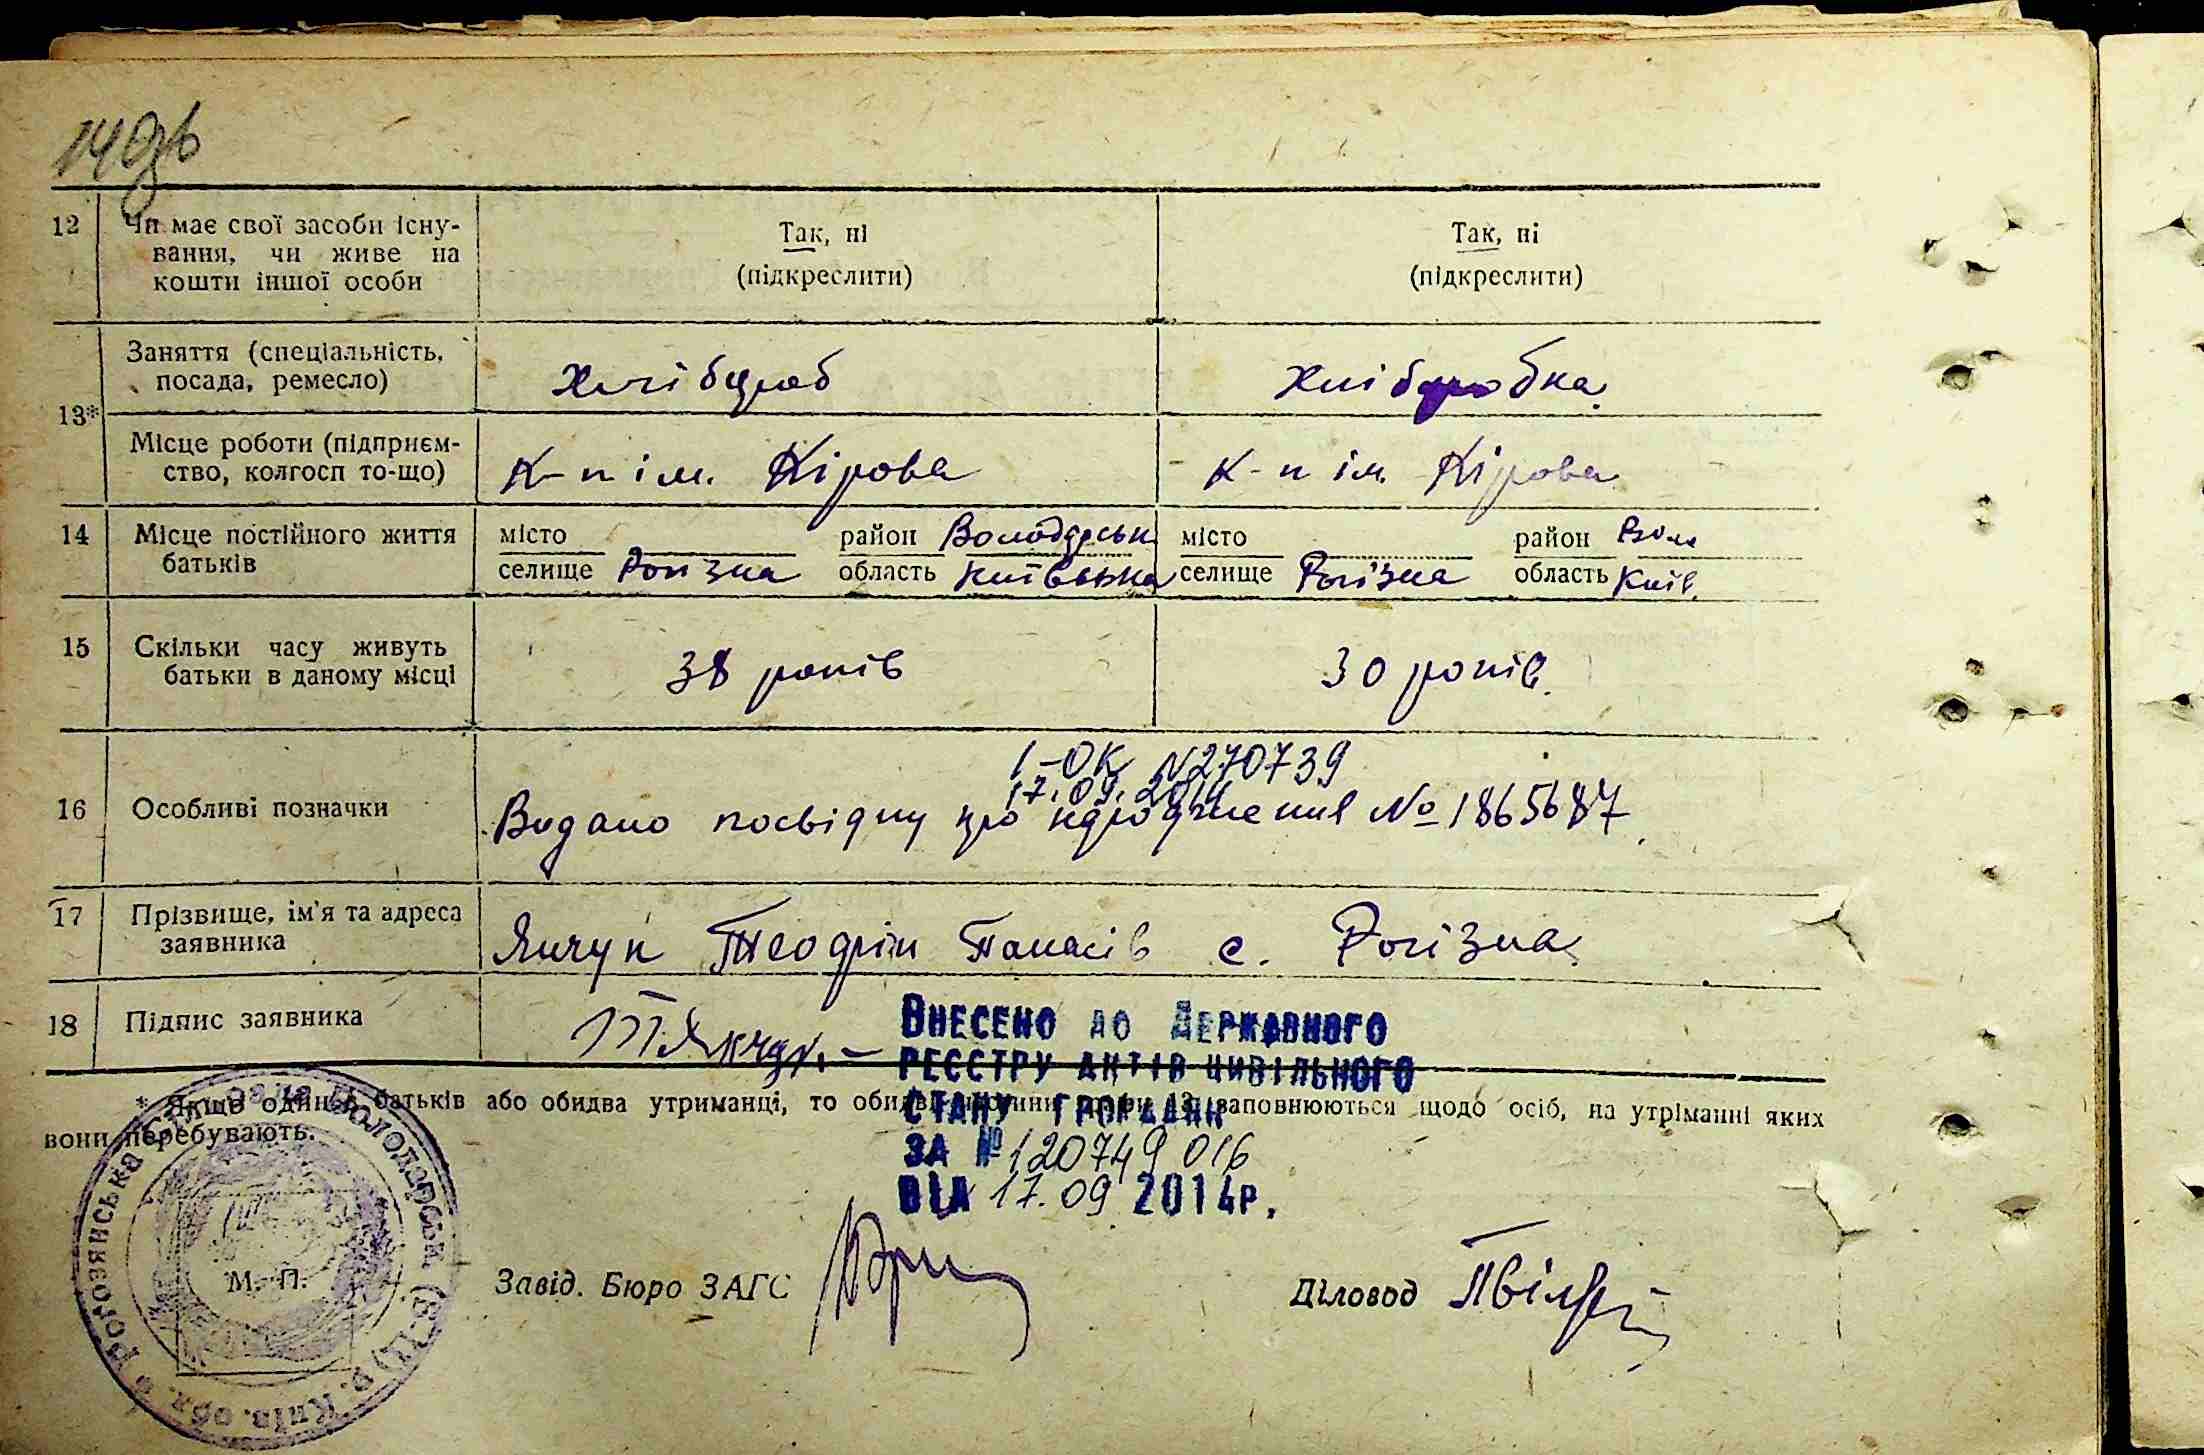 14 зв
12 Чи має свої засоби існу-
вання, чи живе на
кошти іншої особи
Так, ні
(підкреслити)
Так, ні
(підкреслити)
13*
Заняття (спеціальність,
посада, ремесло)
Хлібороб
Хліборобка
Місце роботи (підприєм-
ство, колгосп то-що)
К-п ім. Кірова
К-п ім. Кірова
14 Місце постійного життя
батьків
місто район Володарськ
селище Рогізна область Київська
місто район Вол
селище Рогізна область Київ.
15 Скільки часу живуть
батьки в даному місці
38 років
30 років.
16 Особливі позначки
1-ОК N270739
17.09.2014
Видано посвідку про народження № 1865687
17 Прізвище, ім'я та адреса
заявника
Теодрін Панасів с. Рогізна
18 Підпис заявника
Внесено до Державного
реєстру актів цивільного
стану громадян
за № 120749016
від 17.09 2014р.
* Якщо один з батьків або обидва утриманці, то заповнюються щодо осіб, на утріманні яких
вони перебувають.
М. П.
Завід. Бюро ЗАГС
Діловод